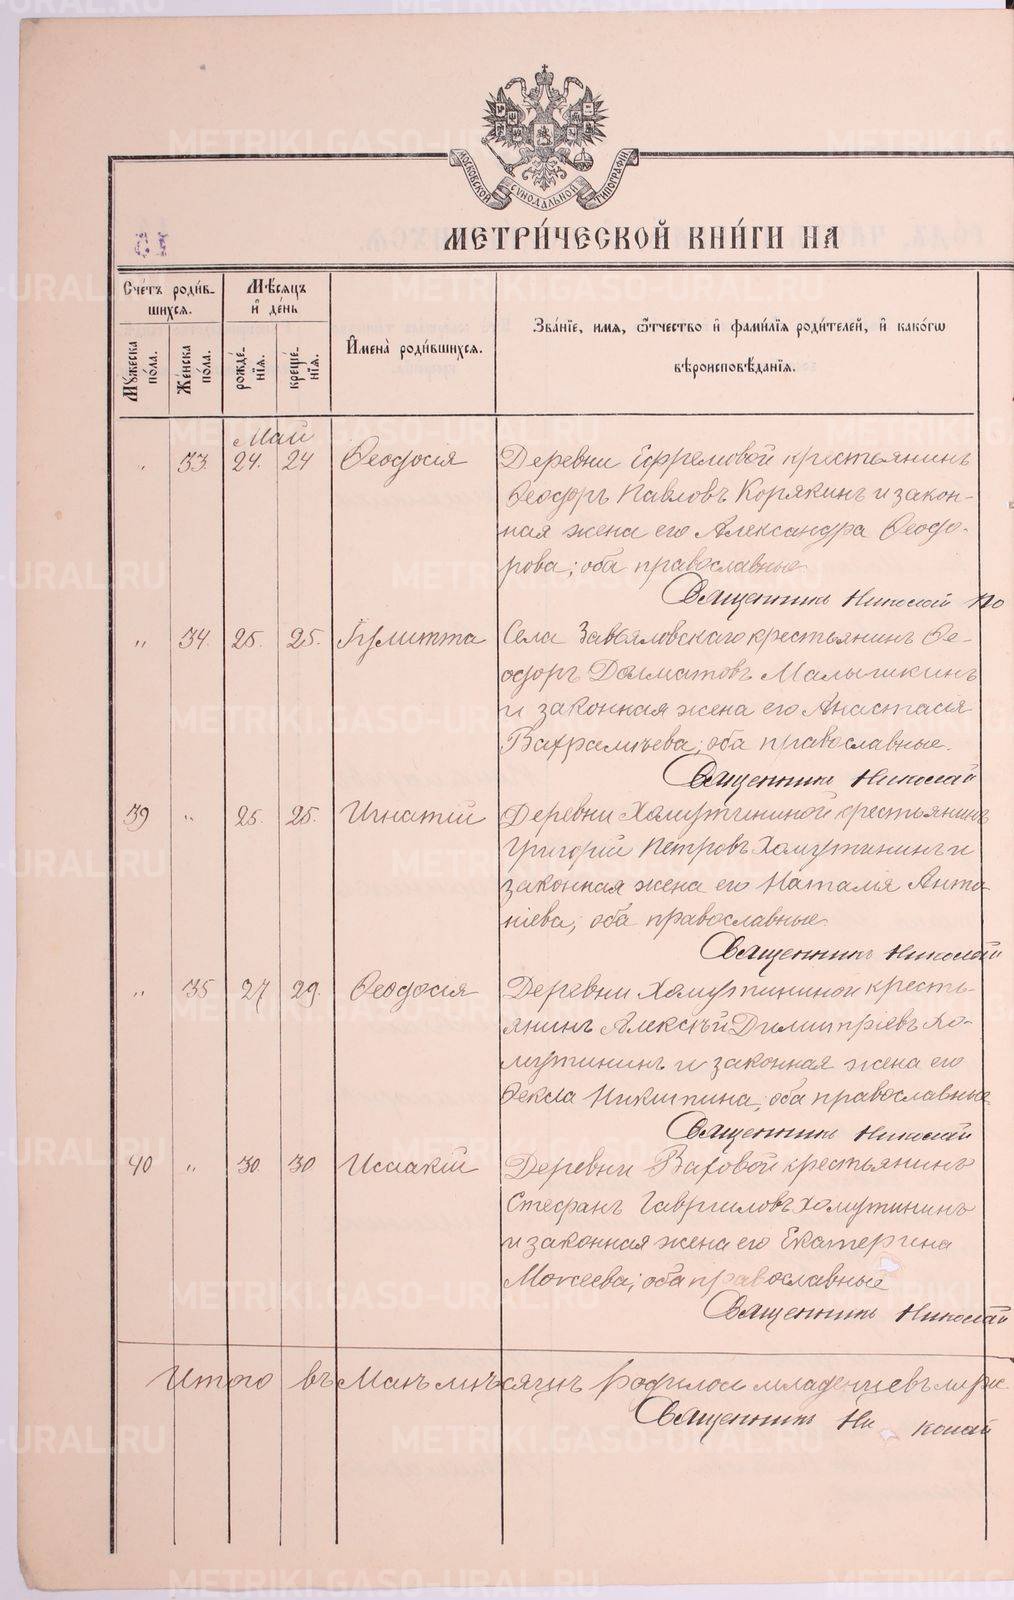 МОСКОВСКОЙ СѴНОДАЛЬНОЙ ТИПОГРАФІИ
МЕТРИ́ЧЕСКОЙ КНИ́ГИ НА
Сче́тъ роди́вшихся.
Мꙋ́жеска по́ла.
Же́нска по́ла.
Мѣ́сяцъ и҆ де́нь
рожде́нїя.
креще́нїя.
И҆мена̀ роди́вшихся.
Зва́нїе, имя, ѿ́тчество и҆ фами́лїя роди́телей, и҆ како́гѡ
вѣроисповѣ́данїя.
Май
„ 33. 24. 24 Ѳеодосія Деревни Ефремовой крестьянинъ
Ѳеодоръ Павловъ Корякинъ и закон-
ная жена его Александра Ѳеодо-
рова; оба православные
Священникъ Николай По
„ 34. 25. 25. Іулитта Села Завьяловскаго крестьянинъ Ѳе-
одоръ Долматовъ Малышкинъ
и законная жена его Анастасія
Вахрамѣева; оба православные.
Священникъ Николай
39 „ 25. 25. Игнатій Деревни Хомутининой крестьянинъ
Григорій Петровъ Хомутининъ и
законная жена его Наталія Анта-
ніева; оба православные
Священникъ Николай
„ 35 27 29. Ѳеодосія Деревни Хомутининой кресть-
янинъ Алексѣй Димитріевъ Хо-
мутининъ и законная жена его
Ѳекла Никитина; оба православные
Священникъ Николай
40 „ 30. 30 Исаакій Деревни Ваховой крестьянинъ
Стефанъ Гавриловъ Хомутининъ
и законная жена его Екатерина
Моисеева; оба православные
Священникъ Николай
Итого въ Маѣ мѣсяцѣ родилось младенцевъ
Священникъ Николай
METRIKI.GASO-URAL.RU